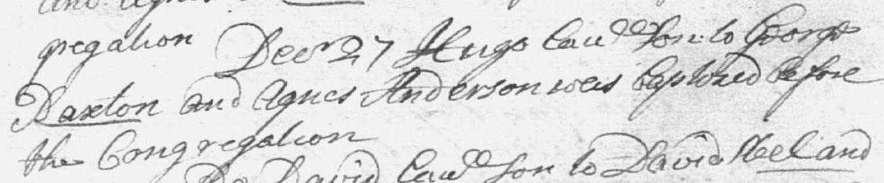 and Agnes
gregation Decr 27 Hugo Lawll Son to George
Paxton and Agnes Anderson was baptized before
the Congregation
Do David Lawll Son to David Neel and